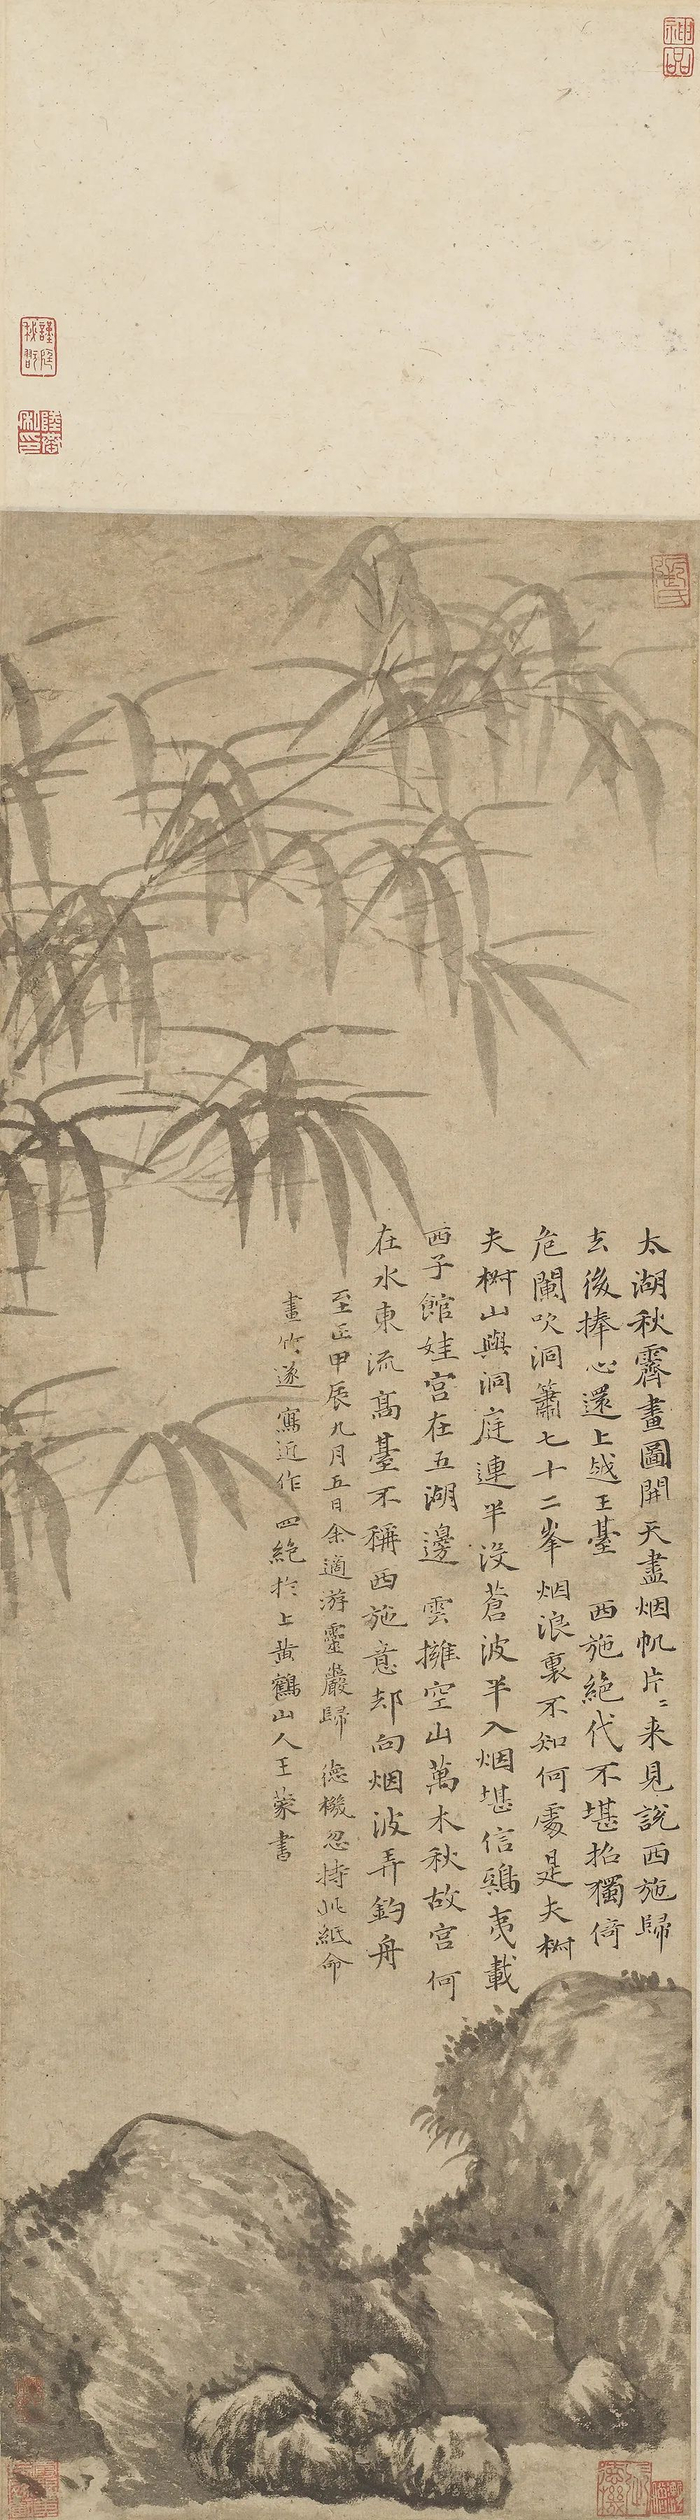 太湖秋霽畫圖開天盡烟帆片〻来見說西施歸
去後捧心還上越王臺　西施絕代不堪招獨倚
危闌吹洞簫七十二峯烟浪裏不知何處是夫椒
夫椒山與洞庭連半沒蒼波半入烟堪信鴟夷載
西子館娃宮在五湖邊　雲擁空山萬木秋故宮何
在水東流高臺不稱西施意却向烟波弄釣舟
至正甲辰九月五日余適游靈巖歸　德機忽持此紙命
畫竹遂寫近作四絕於上黄鶴山人王蒙書
神品